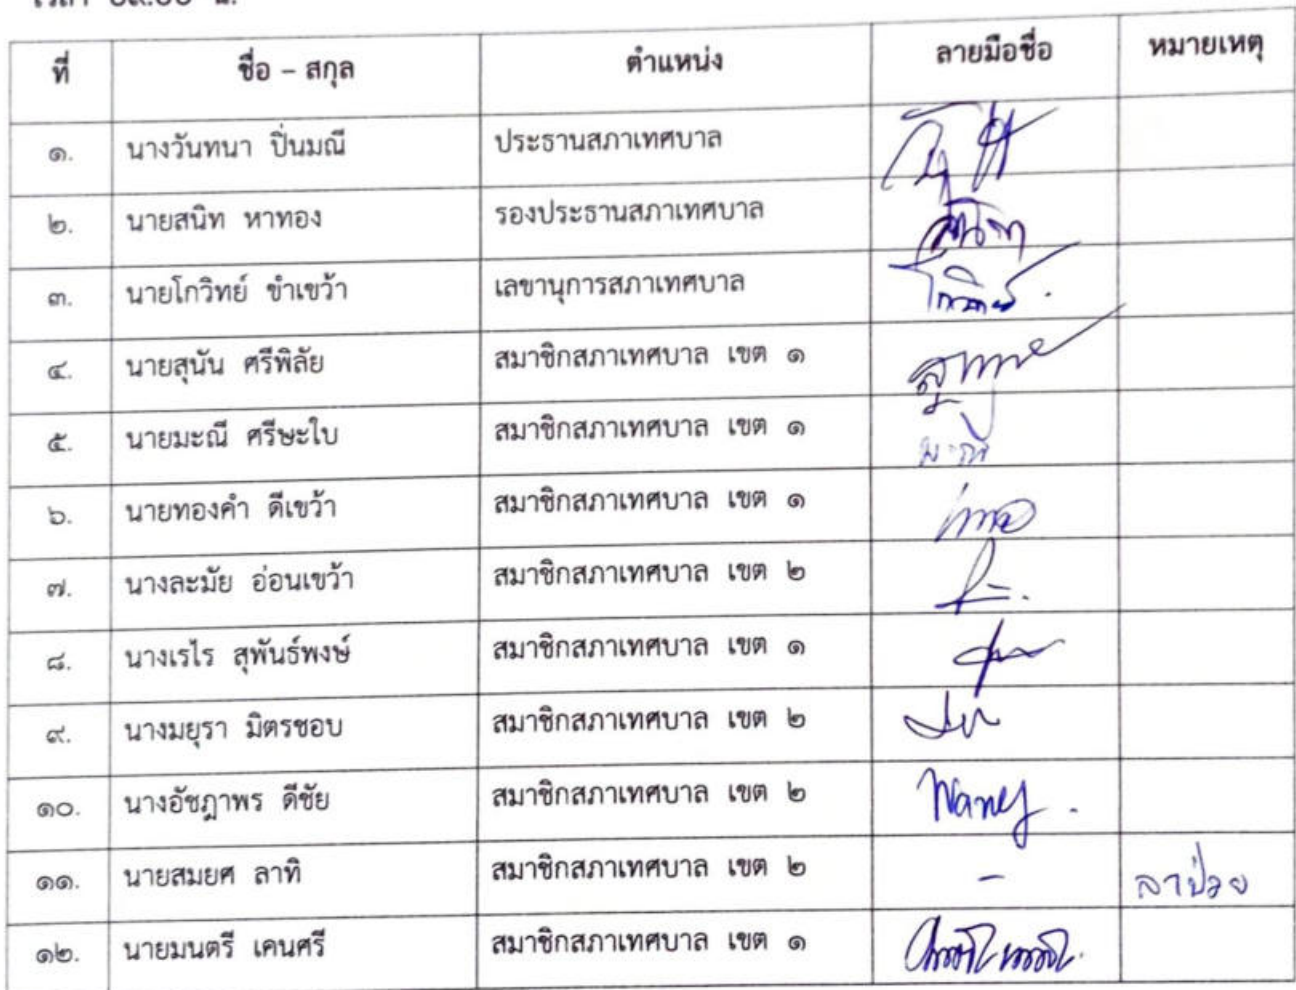 ที่ ชื่อ – สกุล ตำแหน่ง ลายมือชื่อ หมายเหตุ
๑. นางวันทนา ปิ่นมณี ประธานสภาเทศบาล
๒. นายสนิท หาทอง รองประธานสภาเทศบาล สนิท
๓. นายโกวิทย์ ขำเขว้า เลขานุการสภาเทศบาล โกวิทย์
๔. นายสุนัน ศรีพิลัย สมาชิกสภาเทศบาล เขต ๑
๕. นายมะณี ศรีษะใบ สมาชิกสภาเทศบาล เขต ๑ มะณี
๖. นายทองคำ ดีเขว้า สมาชิกสภาเทศบาล เขต ๑
๗. นางละมัย อ่อนเขว้า สมาชิกสภาเทศบาล เขต ๒
๘. นางเรไร สุพันธ์พงษ์ สมาชิกสภาเทศบาล เขต ๑
๙. นางมยุรา มิตรชอบ สมาชิกสภาเทศบาล เขต ๒
๑๐. นางอัชฎาพร ดีชัย สมาชิกสภาเทศบาล เขต ๒
๑๑. นายสมยศ ลาทิ สมาชิกสภาเทศบาล เขต ๒ - ลาป่วย
๑๒. นายมนตรี เคนศรี สมาชิกสภาเทศบาล เขต ๑